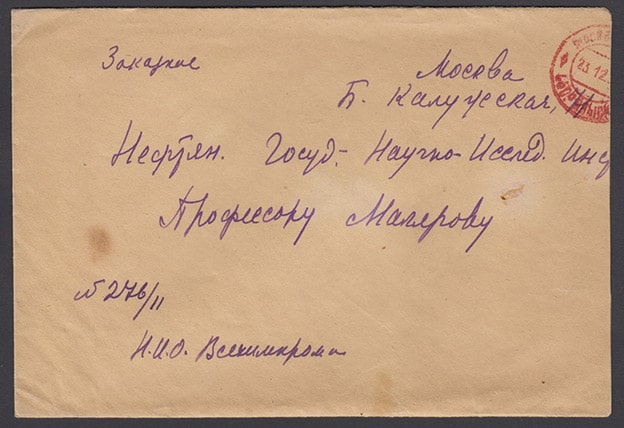 Заказное
Москва
Б. Калужская,
Нефтян. Госуд. Научно-Исслед. Инс
Профессору
№ 276/11
Н.И.О. Всехимпрома
23 12